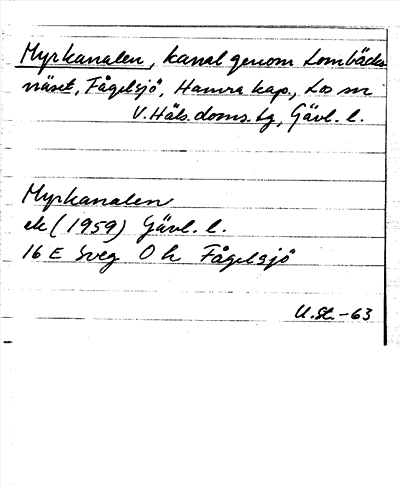 Myrkanalen, kanal genom Lombäcks-
näset, Fågelsjö, Hamra kap., Los sn
V. Häls. doms. tg, Gävl. l.
Myrkanalen
ek (1959) Gävl. l.
16 E Sveg 0 h Fågelsjö
U. St. -63